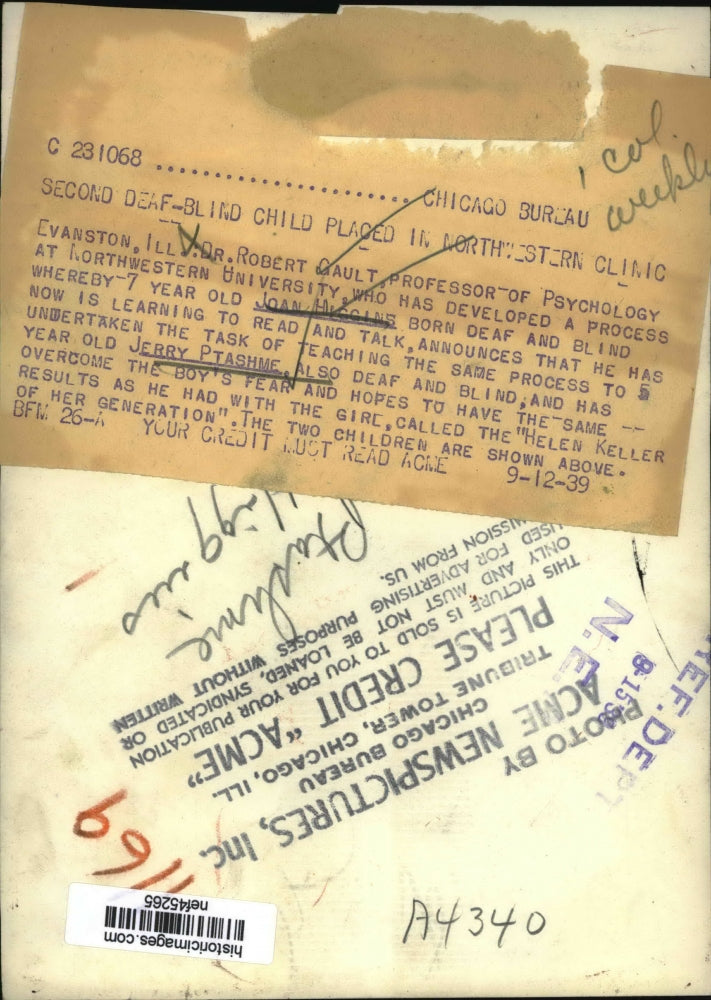 C 231068 .......................... CHICAGO BUREAU
1 col.
weekly
SECOND DEAF-BLIND CHILD PLACED IN NORTHWESTERN CLINIC
EVANSTON, ILL.,DR. ROBERT GAULT, PROFESSOR OF PSYCHOLOGY
AT NORTHWESTERN UNIVERSITY, WHO HAS DEVELOPED A PROCESS
WHEREBY 7 YEAR OLD JOAN HIGGINS BORN DEAF AND BLIND
NOW IS LEARNING TO READ AND TALK, ANNOUNCES THAT HE HAS
UNDERTAKEN THE TASK OF TEACHING THE SAME PROCESS TO 5
YEAR OLD JERRY PTASHME, ALSO DEAF AND BLIND, AND HAS
OVERCOME THE BOY'S FEAR AND HOPES TO HAVE THE SAME --
RESULTS AS HE HAD WITH THE GIRL, CALLED THE "HELEN KELLER
OF HER GENERATION". THE TWO CHILDREN ARE SHOWN ABOVE.
BFM 26-A YOUR CREDIT MUST READ ACME 9-12-39
Higgins
Ptashme
PHOTO BY
ACME NEWSPICTURES, Inc.
CHICAGO BUREAU
TRIBUNE TOWER, CHICAGO, ILL.
PLEASE CREDIT "ACME"
THIS PICTURE IS SOLD TO YOU FOR YOUR PUBLICATION
ONLY AND MUST NOT BE LOANED, SYNDICATED OR
USED FOR ADVERTISING PURPOSES WITHOUT WRITTEN
MISSION FROM US.
REF. DEPT
N.E.
1169
historicimages.com
nef45265
A4340